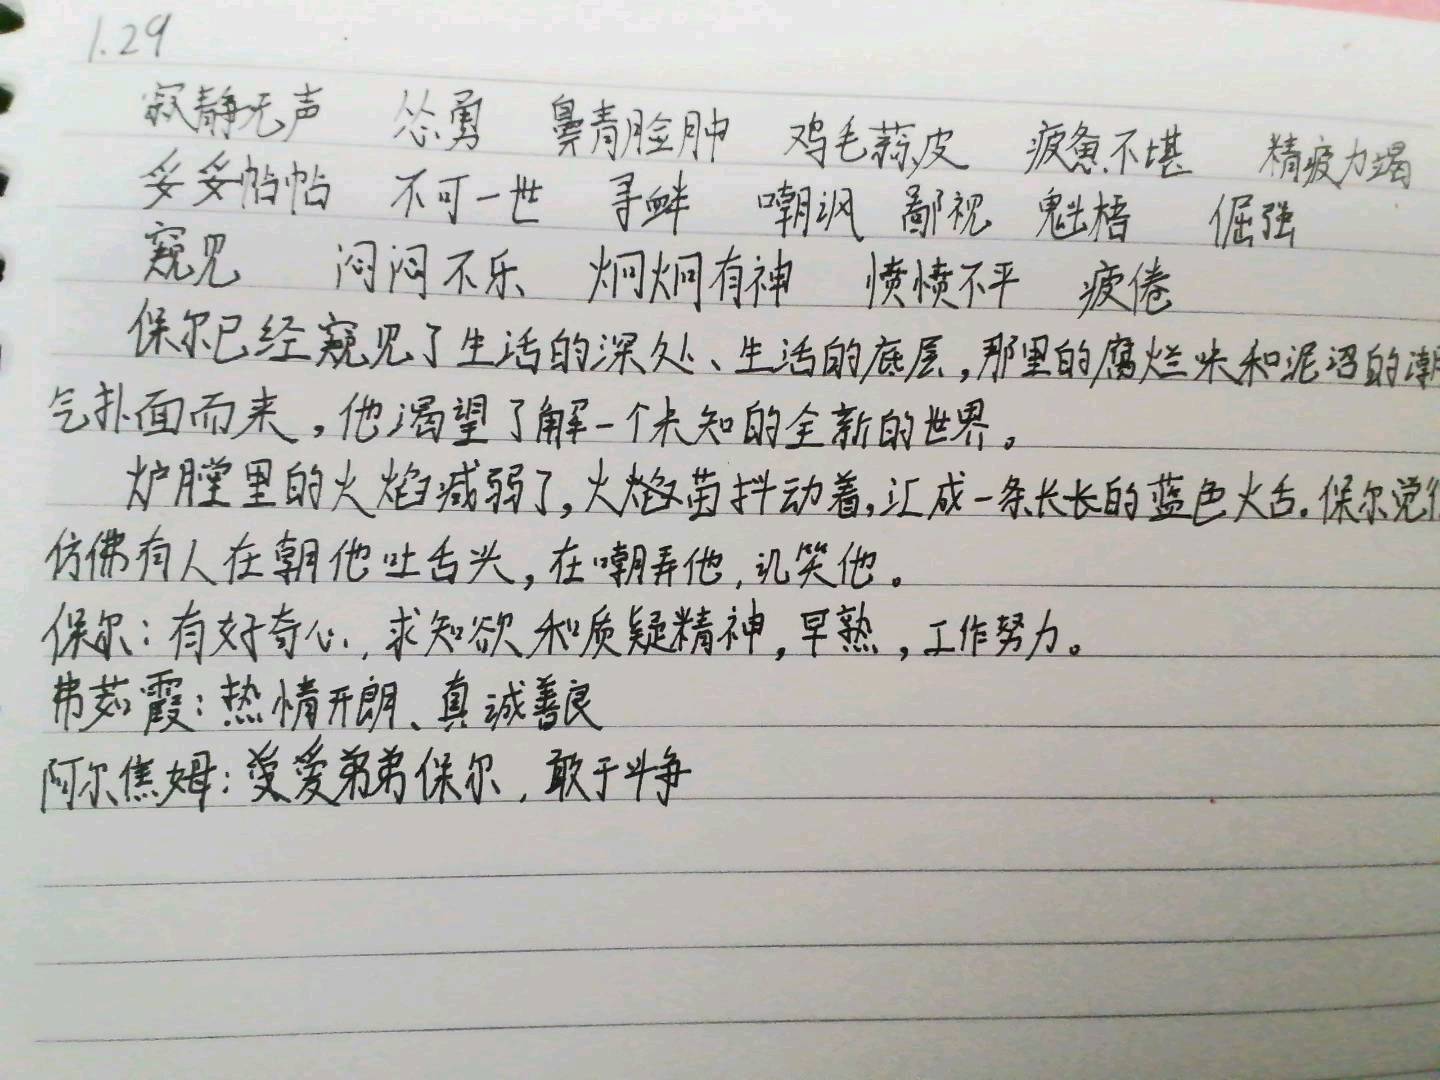 1.29
寂静无声 怂勇 鼻青脸肿 鸡毛蒜皮 疲惫不堪 精疲力竭
妥妥帖帖 不可一世 寻衅 嘲讽 鄙视 魁梧 倔强
窥见 闷闷不乐 炯炯有神 愤愤不平 疲倦
保尔已经窥见了生活的深处、生活的底层,那里的腐烂味和泥沼的潮
气扑面而来,他渴望了解一个未知的全新的世界。
炉膛里的火焰减弱了,火焰苗抖动着,汇成一条长长的蓝色火舌。保尔觉得
仿佛有人在朝他吐舌头,在嘲弄他,讥笑他。
保尔:有好奇心,求知欲和质疑精神,早熟,工作努力。
弗茹霞:热情开朗、真诚善良
阿尔焦姆:爱弟弟保尔,敢于斗争